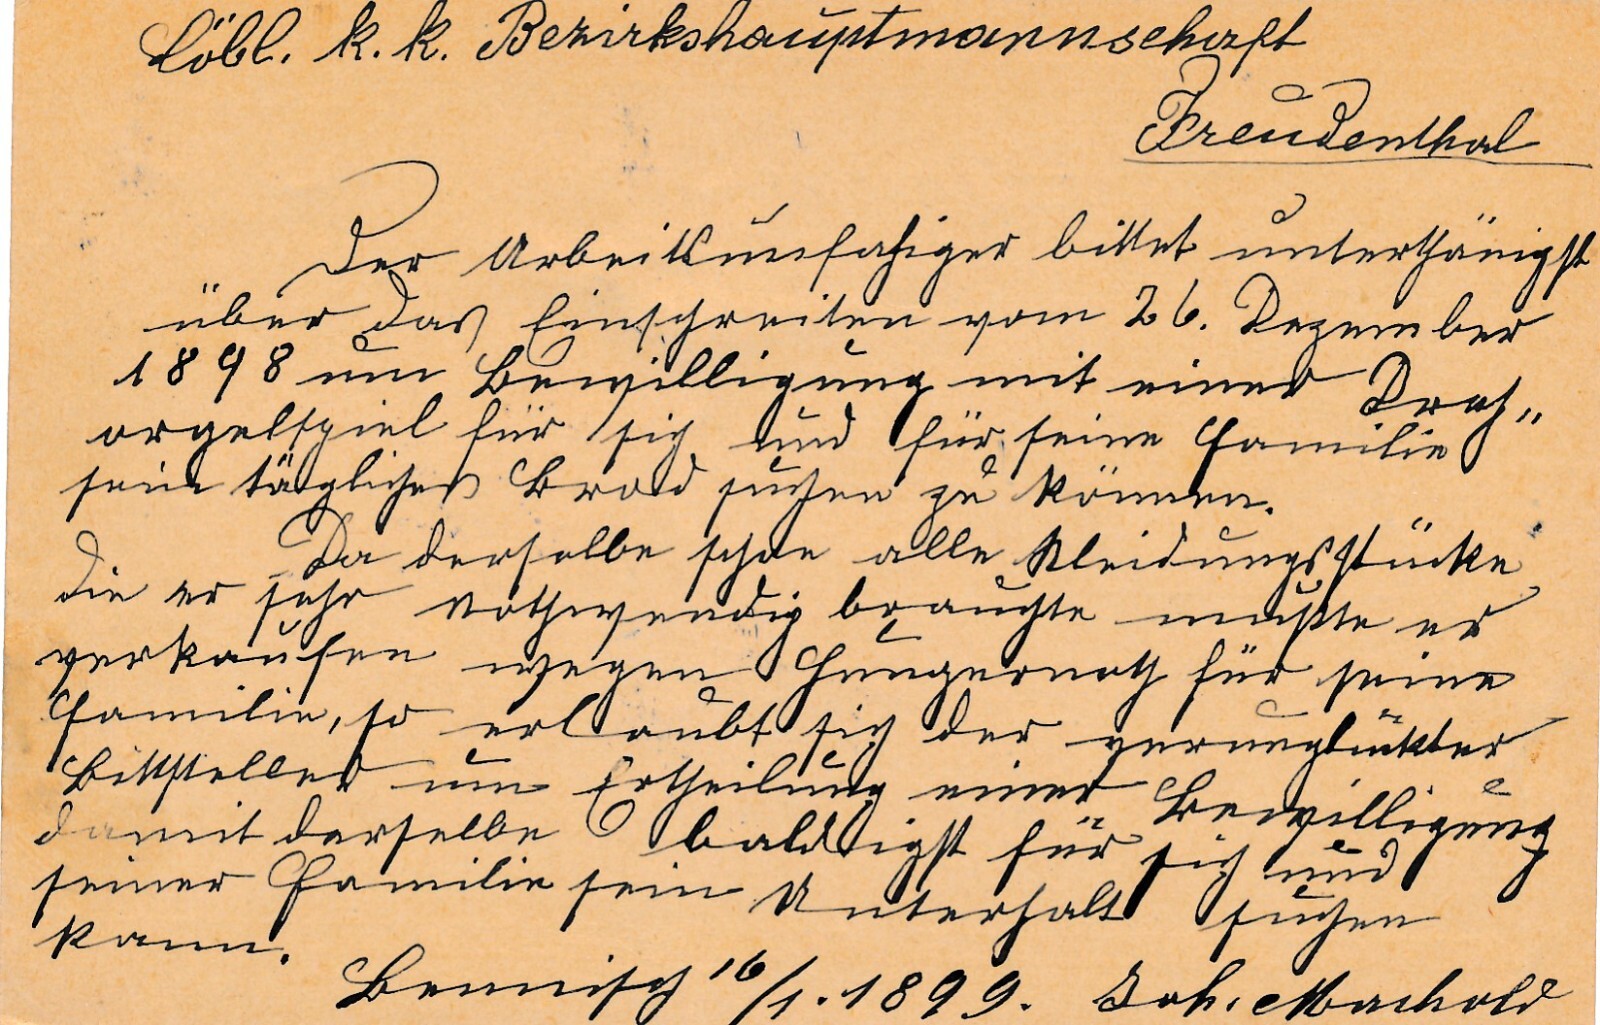 Löbl. k. k. Bezirkshauptmannschaft
Freudenthal
Der Arbeitsunfahiger bittet unterthänigst
über das Einschreiten vom 26. Dezember
1898 um Bewilligung mit einer Drah„
orgelspiel für sich und für seine Familie
sein tägliches Brod suchen zu können.
Da derselbe schon alle Kleidungsstücke
die er sehr nothwendig brauchte mußte er
verkaufen wegen Hungernoth für seine
Familie, so erlaubt sich der verunglückter
Bittsteller um Ertheilung einer Bewilligung
damit derselbe baldigst für sich und
seiner Familie sein Unterhalt suchen
kann.
Bennisch 16/1. 1899. Joh. Machold